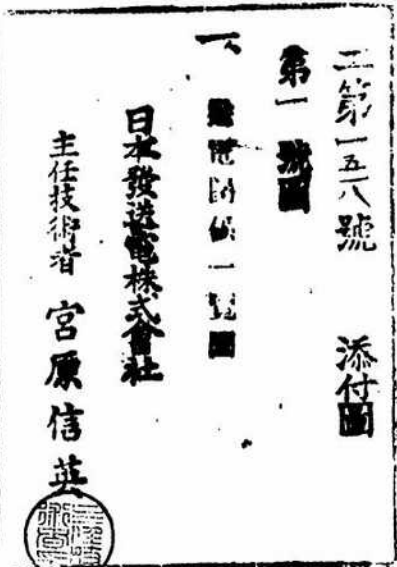 二第一五八號　添付圖
第一號圖
一、發電関係一覧圖
日本發送電株式會社
主任技術者　宮原信英